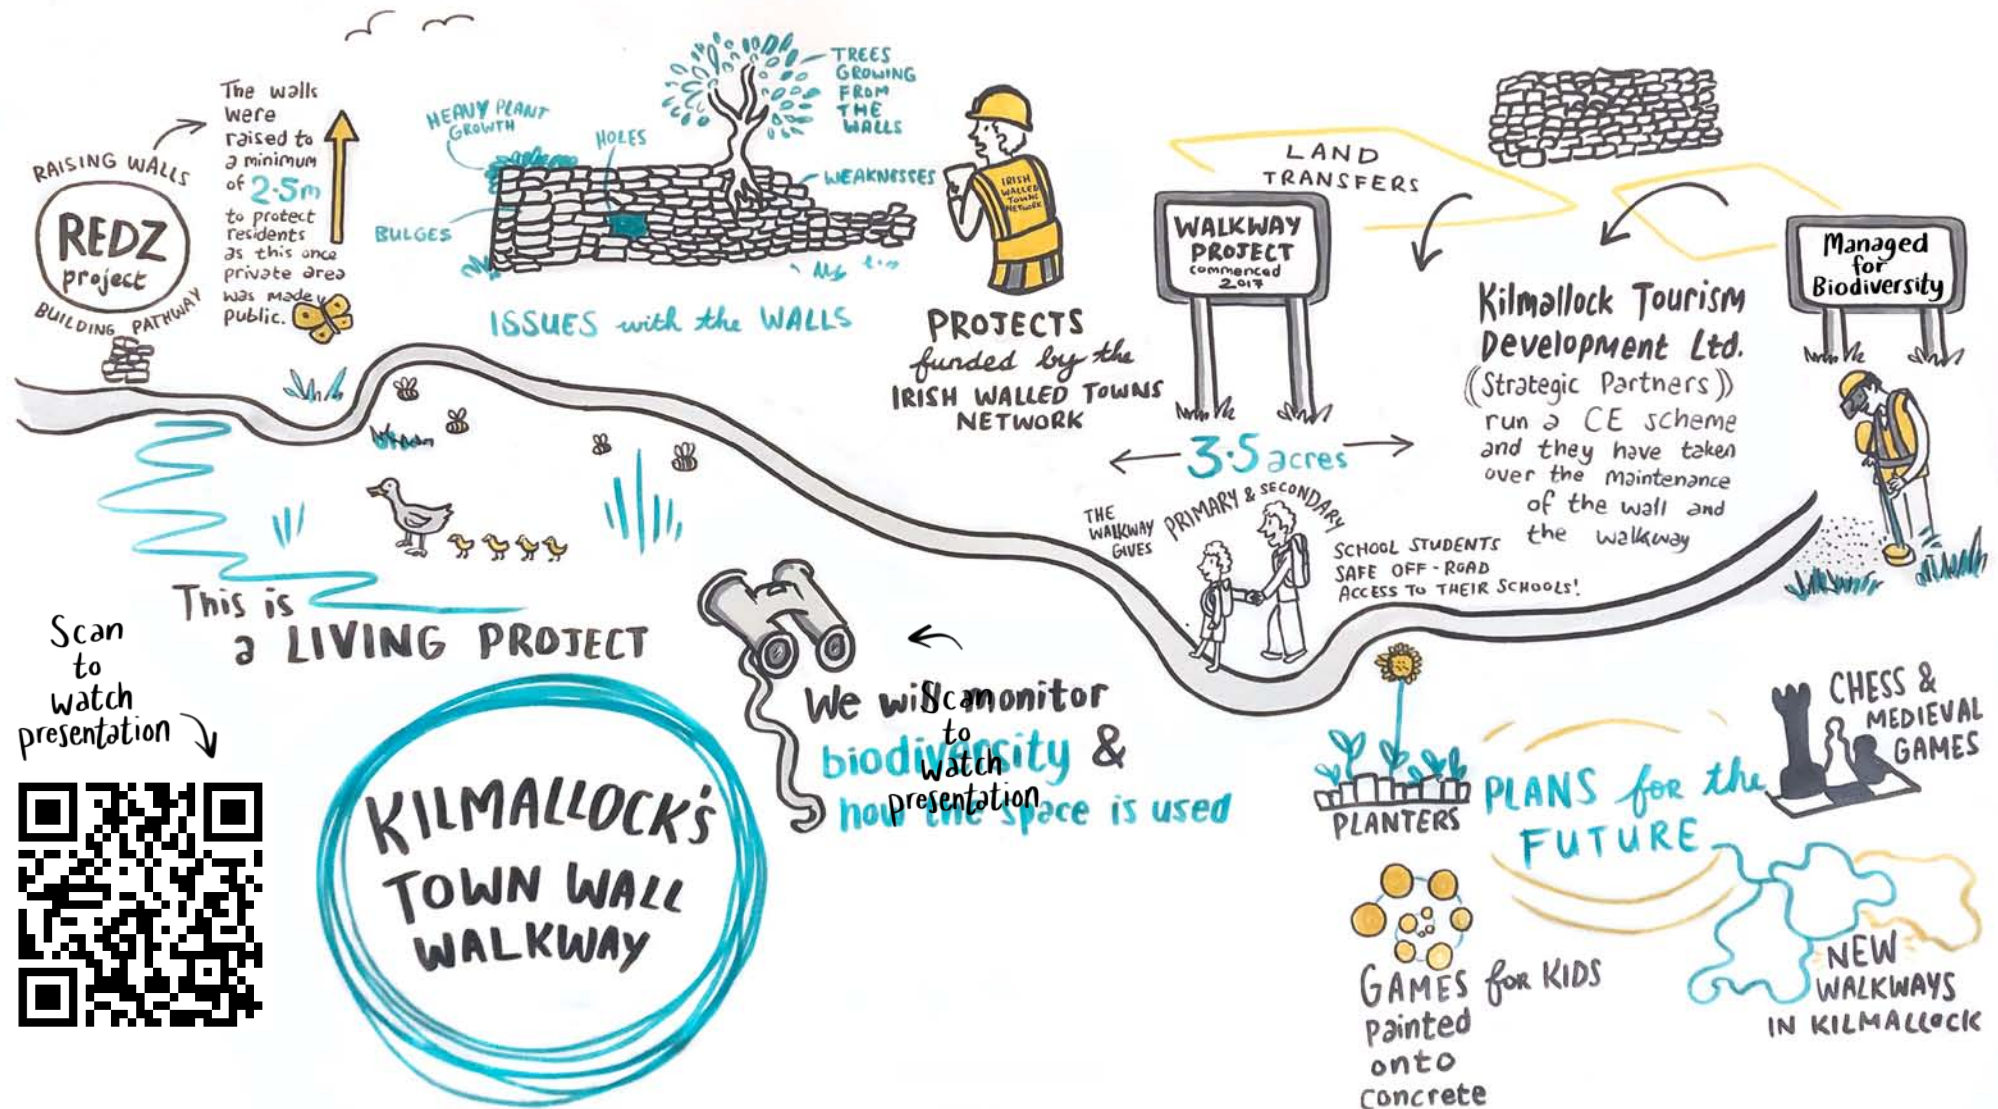 RAISING WALLS
REDZ
project
BUILDING PATHWAY
The walls
were
raised to
a minimum
of 2.5m
to protect
residents
as this once
private area
was made
public.
HEAVY PLANT
GROWTH
HOLES
TREES
GROWING
FROM
THE
WALLS
WEAKNESSES
BULGES
ISSUES with the WALLS
IRISH
WALLED
TOWNS
NETWORK
PROJECTS
funded by the
IRISH WALLED TOWNS
NETWORK
LAND
TRANSFERS
WALKWAY
PROJECT
commenced
2017
3.5 acres
THE
WALKWAY
GIVES
PRIMARY & SECONDARY
SCHOOL STUDENTS
SAFE OFF-ROAD
ACCESS TO THEIR SCHOOLS!
Kilmallock Tourism
Development Ltd.
((Strategic Partners))
run a CE scheme
and they have taken
over the maintenance
of the wall and
the walkway
Managed
for
Biodiversity
This is
a LIVING PROJECT
Scan
to
watch
presentation
KILMALLOCK'S
TOWN WALL
WALKWAY
We will monitor
biodiversity &
how the space is used
Scan
to
watch
presentation
PLANTERS
PLANS for the
FUTURE
CHESS &
MEDIEVAL
GAMES
GAMES for KIDS
painted
onto
concrete
NEW
WALKWAYS
IN KILMALLOCK